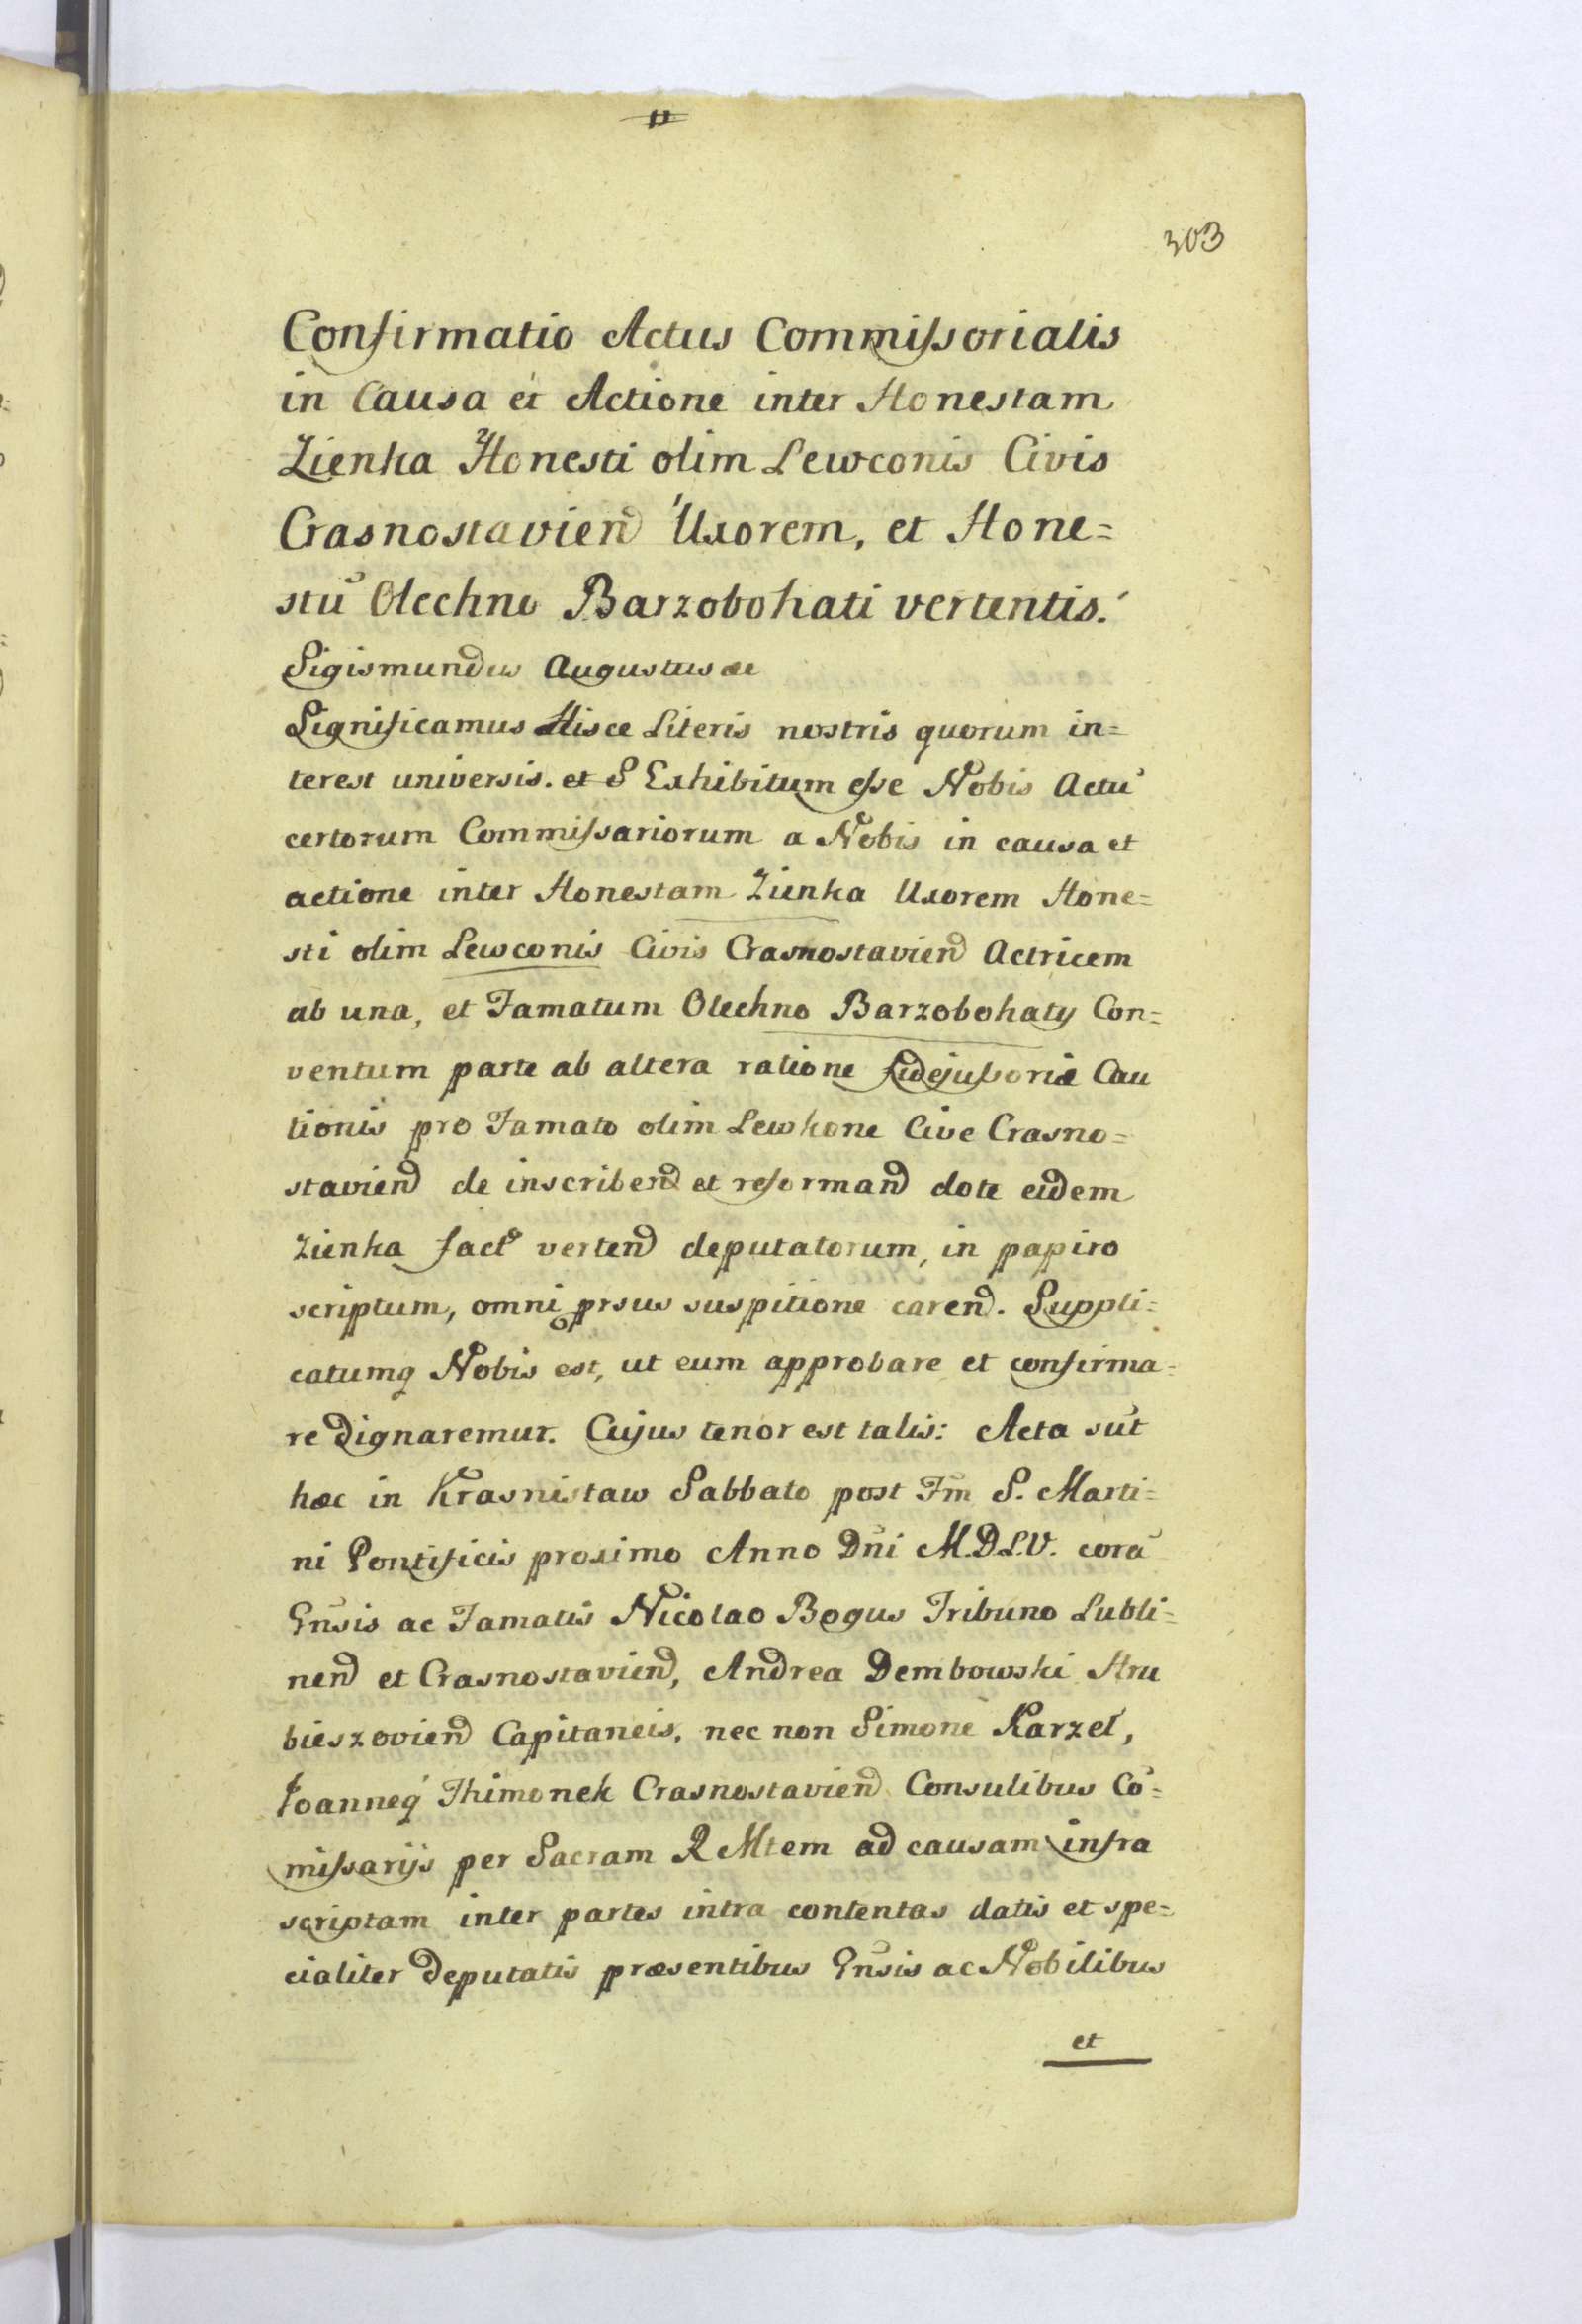 303
Confirmatio Actus Commissorialis
in Causa et Actione inter Honestam
Zienka Honesti olim Lewconis Civis
Crasnostavien Uxorem, et Hone=
stū Olechno Barzobohati vertentis.
Sigismundus Augustus &c
Significamus Hisce Literis nostris quorum in=
terest universis. et S Exhibitum esse Nobis Actū
certorum Commissariorum a Nobis in causa et
actione inter Honestam Zienka Uxorem Hone=
sti olim Lewconis Civis Crasnostavien Actricem
ab una, et Famatum Olechno Barzobohaty Con=
ventum parte ab altera ratione fidejussoriæ Cau
tionis pro Famato olim Lewkone Cive Crasno=
stavien de inscribend et reformand dote eidem
Zienka fact verten deputatorum, in papiro
scriptum, omni prsus suspitione caren. Suppli=
catumq Nobis est, ut eum approbare et confirma=
re dignaremur. Cujus tenor est talis: Acta sūt
hæc in Krasnistaw Sabbato post Fm S. Marti=
ni Pontificis proximo Anno Dñi M.D.L.V. corā
Gnsis ac Famatis Nicolao Bogus Tribuno Lubli=
nen et Crasnostavien, Andrea Dembowski Hru
bieszovien Capitaneis, nec non Simone Karzel,
Joanneq Thimonek Crasnostavien Consulibus Cō=
missarijs per Sacram R Mtem ad causam infra
scriptam inter partes intra contentas datis et spe=
cialiter deputatis præsentibus Gnsis ac Nobilibus
et